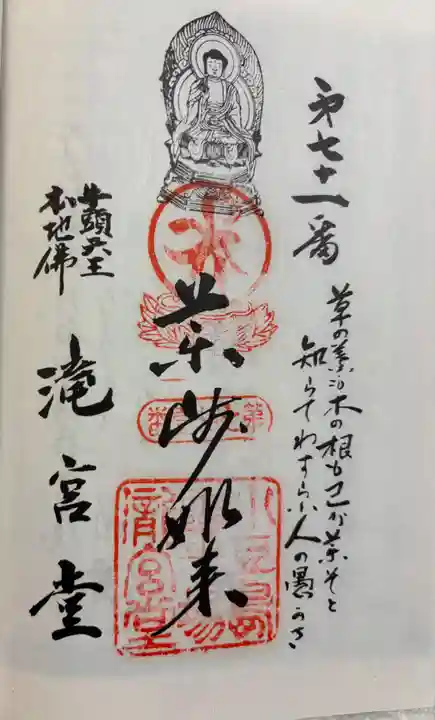 第七十一番
草の葉も木の根も己が薬そと
知らでわずらふ人の愚かさ
薬師如来
牛頭天王
本地佛
滝宮堂